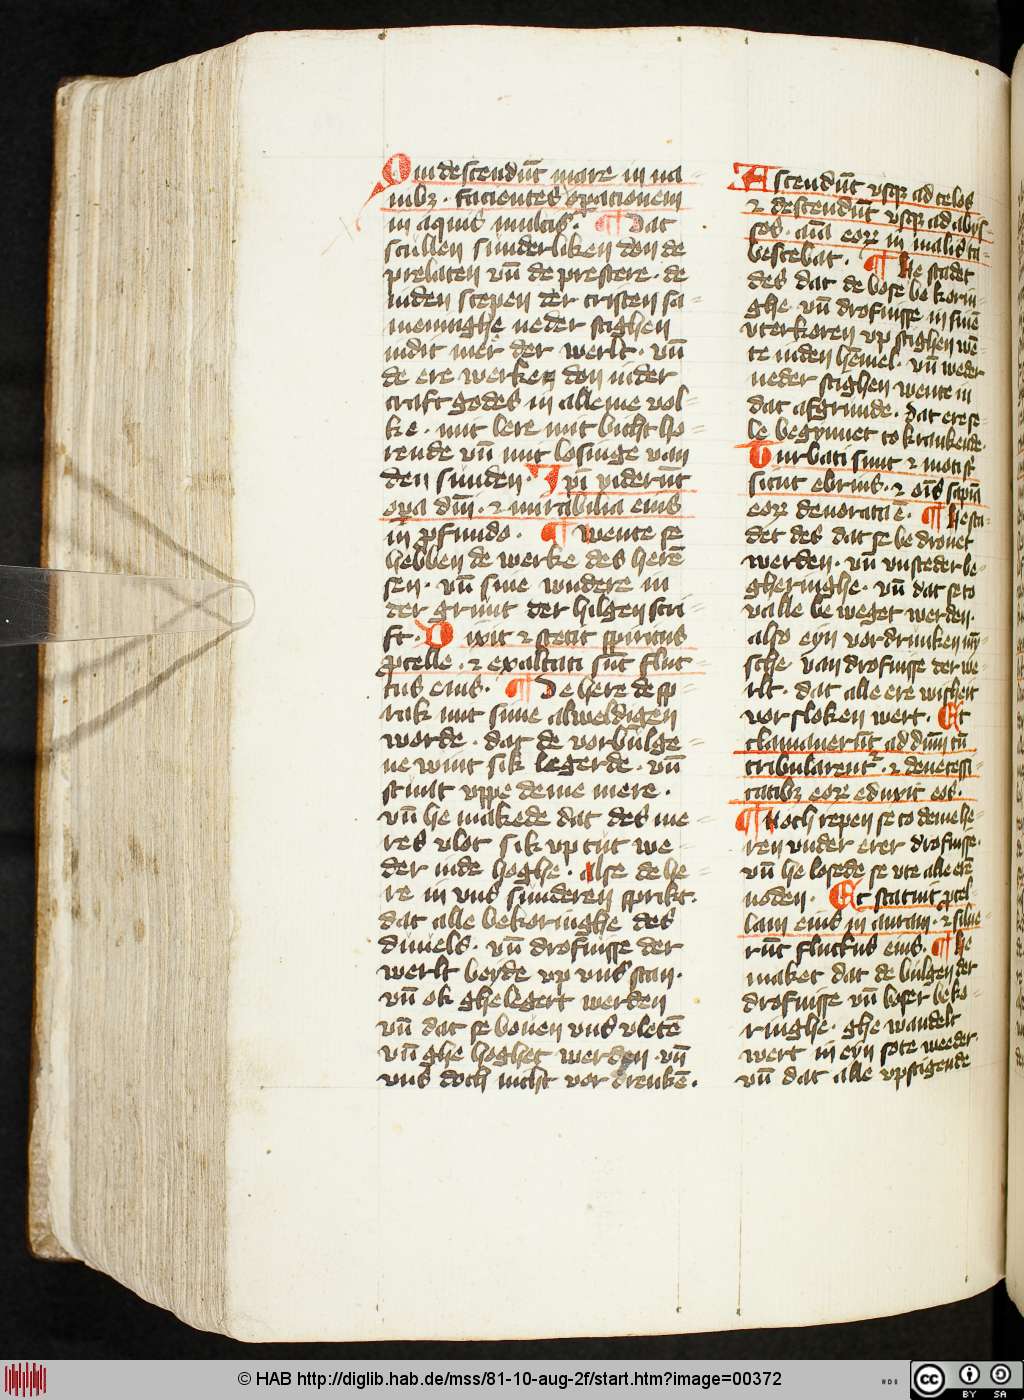 Qui descendūt mare in na
uibꝫ · facientes opacionem
in aquis multis · ¶ Dat
scullen sunderliken don de
prelaten vn̄ de prestere · de
inden scepen der cristen sa=
meninghe neder stighen
indit mer der werlt · vn̄
de ere werken don in der
craft godes in alleme vol=
ke · mit lere mit bicht ho=
rende vn̄ mit losinge van
den sunden · Ipi viderūt
opa dn̄i · ⁊ mirabilia eius
in pfundo · ¶ Wente se
hebben de werke des herē
sen · vn̄ sine wndere in
der grunt der hilgen scri=
ft · Dixit ⁊ stetit spiritus
pcelle · ⁊ exaltati sūt fluc=
tus eius · ¶ De here de sp=
rak mit sime alweldigen
worde · dat de vorbulge=
ne wint sik legerde · vn̄
stunt vppe deme mere ·
vn̄ he makede dat des me=
res vlot sik vp tut we=
der inde hoghe · Alse de he=
re in vns sunderen sprikt ·
dat alle bekoringhe des
duuels · vn̄ drofnisse der
werlt beyde vp vns stan ·
vn̄ ok ghelegert werden
vn̄ dat se bouen vns vletē
vn̄ ghe hoghet werden · vn̄
vns doch nicht vor drenkē ·
Ascendūt vsqꝫ ad celos
⁊ descendūt vsqꝫ ad abys=
sos · aīa eoꝝ in malis ta=
bescebat · ¶ He stadet
des dat de bose be korin=
ghe · vn̄ drofnisse in sinē
vterkoren vp stighen wē=
te inden hēmel · vn̄ weder
neder stighen wente in
dat afgrunde · dat ere se=
le begynnet to krankende ·
Turbati sunt ⁊ moti st̄
sicut ebrius · ⁊ oīs sapīa
eoꝝ deuorata ē · ¶ He sta=
det des dat se be drouet
werden · vn̄ vnsteder be=
gheringhe · vn̄ dat se to
valle be weget werden ·
also eyn vordrunken mī=
sche van drofnisse der we=
rlt · dat alle ere wisheit
vorsloken wert · Et
clamauerūt ad dn̄m cū
tribularent᷑ · ⁊ de necessi=
tatibꝫ eoꝝ eduxit eos ·
¶ Noch repen se to deme he=
ren vnder erer drofnisse ·
vn̄ he losede se vte alle erē
noden · Et statuit pcel=
lam eius in auram · ⁊ silue=
rūt fluctus eius · ¶ He
maket dat de bulgen der
drofnisse vn̄ boser beko=
ringhe · ghe wandelt
wert in eyn sote weeder ·
vn̄ dat alle vpstigende
© HAB http://diglib.hab.de/mss/81-10-aug-2f/start.htm?image=00372
cc BY SA